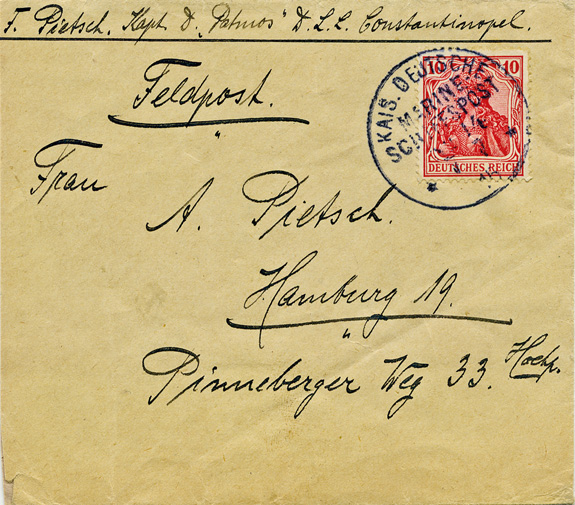 F. Pietsch. Kapt. D. „Patmos" D. L. L. Constantinopel.
Feldpost.
Frau
A. Pietsch.
Hamburg 19.
Pinneberger Weg 33. Hochp.
KAIS. DEUTSCHE
MARINE-
SCHIFFSPOST
10 10
DEUTSCHES REICH